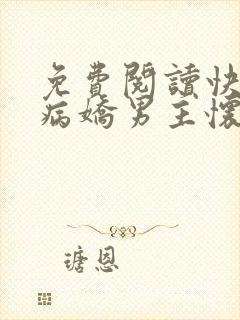 免費閱讀快
病嬌男主懷
瑭恩